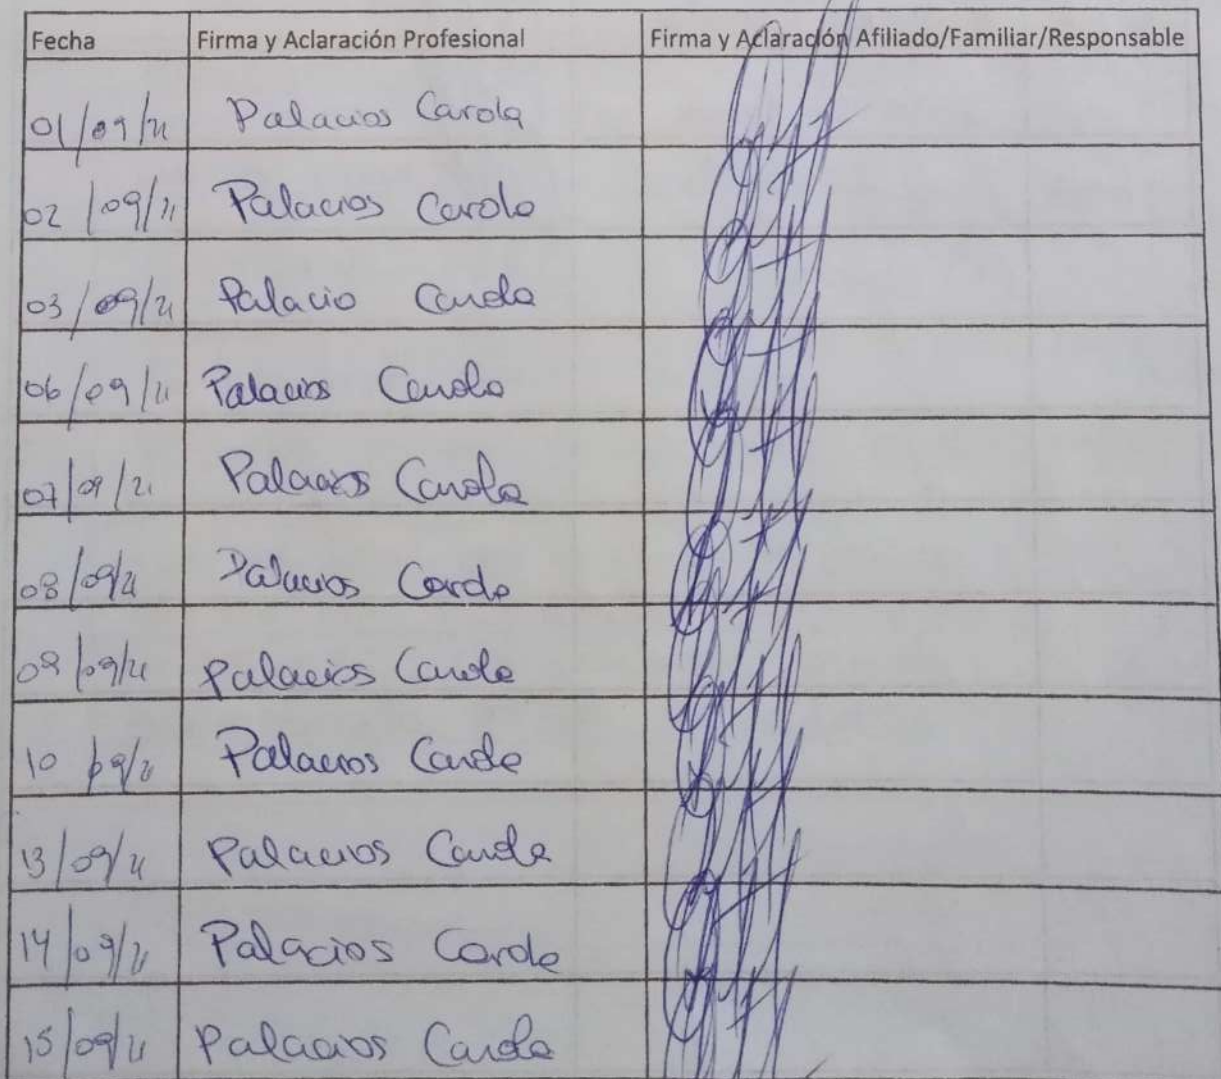 Fecha Firma y Aclaración Profesional Firma y Aclaración Afiliado/Familiar/Responsable
01/09/21 Palacios Carola
02/09/21 Palacios Carola
03/09/21 Palacio Carola
06/09/21 Palacios Carola
07/09/21 Palacios Carola
08/09/21 Palacios Carola
09/09/21 Palacios Carola
10/09/21 Palacios Carola
13/09/21 Palacios Carola
14/09/21 Palacios Carola
15/09/21 Palacios Carola